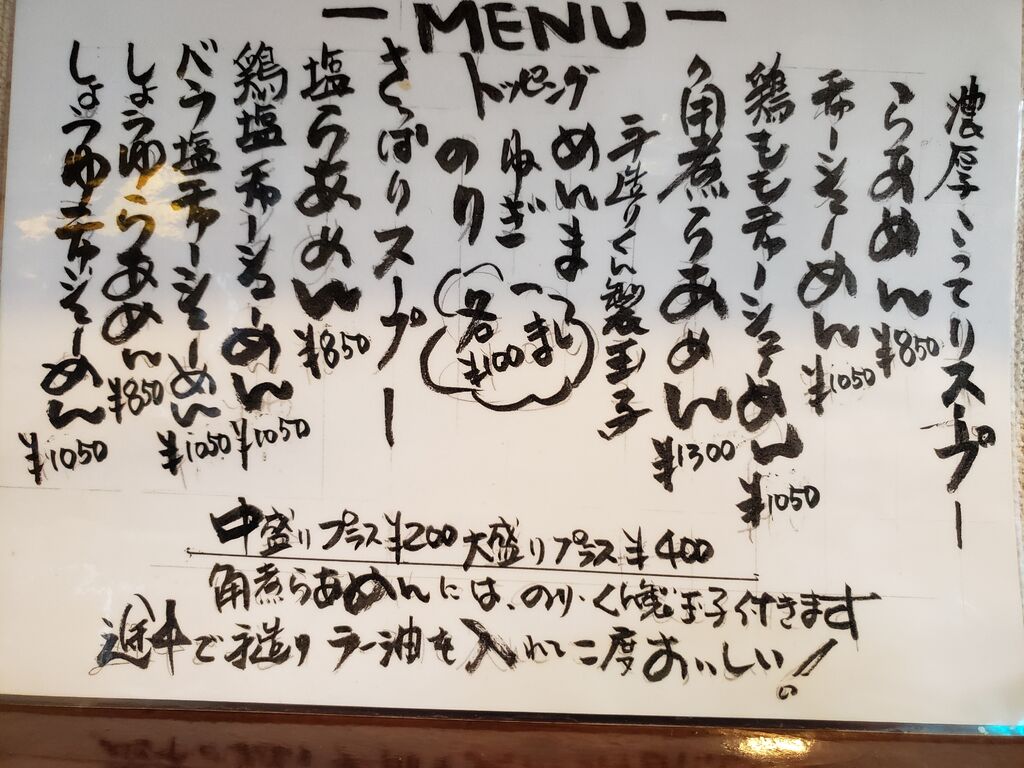 ー MENU ー
濃厚こってりスープー
らあめん ¥850
チャーシューめん ¥1050
鶏ももチャーシューめん ¥1050
角煮らあめん ¥1300
トッピング
手造りくん製玉子
めんま
ねぎ
のり
各一まし
¥100
さっぱりスープー
塩らあめん ¥850
鶏塩チャーシューめん ¥1050
バラ塩チャーシューめん ¥1050
しょうゆらあめん ¥850
しょうゆチャーシューめん ¥1050
中盛りプラス¥200 大盛りプラス¥400
角煮らあめんには、のり・くん製玉子付きます
途中で手造りラー油を入れて二度おいしい!